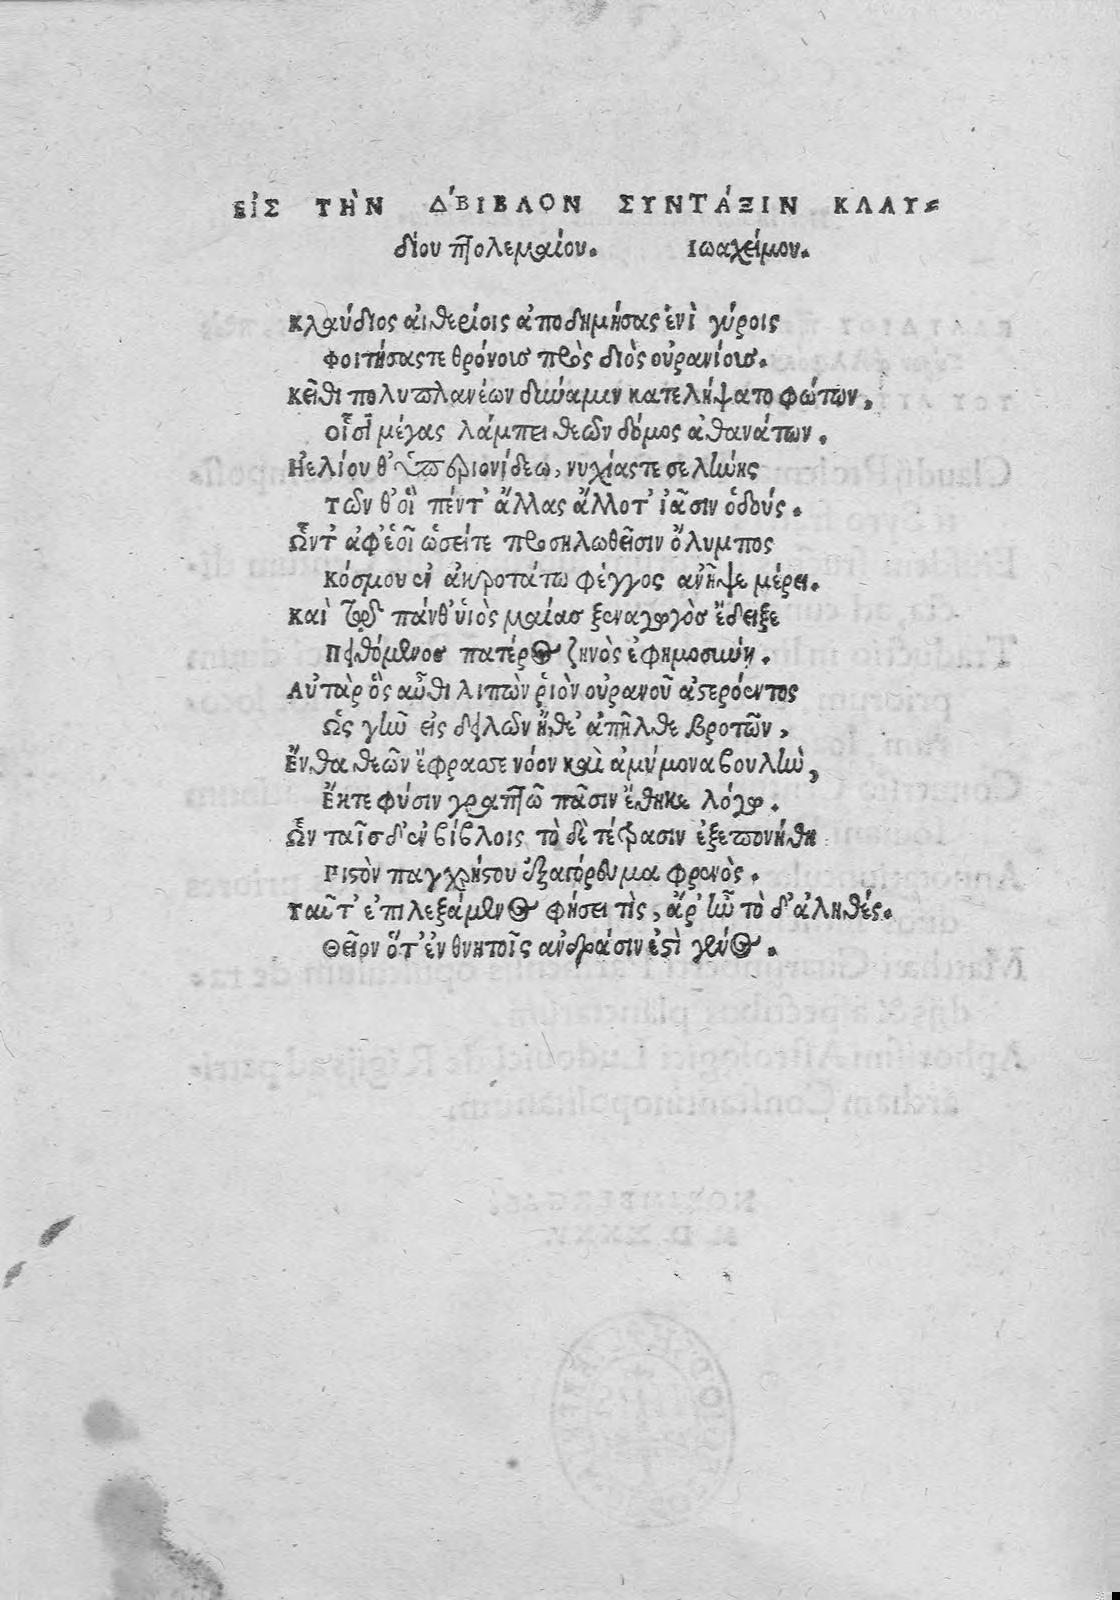 ΕἸΣ ΤῊΝ Δ´ΒΙΒΛΟΝ ΣΥΝΤΆΞΙΝ ΚΛΑΥ-
δίου πτολεμαίου. Ἰωαχείμου.
Κλαύδιος αἰθερίοις ἀποδημήσας ἐνὶ γύροις
φοιτήσας τε θρόνοισ πρὸς διὸς οὐρανίοισ.
Κεῖθι πολυπλανέων δύναμιν κατελήψατο φώτων,
οἷσϊ μέγας λάμπει θεῶν δόμος ἀθανάτων.
Ἠελίου θ' ὑπεριονίδεω, νυχίας τε σελήνης
τῶν θ' οἳ πέντ' ἄλλας ἄλλοτ' ἰᾶσιν ὁδούς.
Ὧν τ' ἀφ' ἑοῖ ὡσείτε προσηλωθεῖσιν ὄλυμπος
κόσμου ἐν ἀκροτάτω φέγγος ἀνῆψε μέρει.
Καὶ πάνθ' ὑιὸς μαίασ ξεναγωγὸσ ἔδειξε
Πειθόμενοσ πατέρος ζηνὸς ἐφημοσύνη.
Αὐτὰρ ὃς αὖθι λιπὼν ῥιὸν οὐρανοῦ ἀστερόεντος
Ὡς γῆν εἰς δειλῶν ἤθε' ἀπῆλθε βροτῶν,
Ἔνθα θεῶν ἔφρασσε νόον καὶ ἀμύμονα βουλὴν,
Ἔκτε φύσιν γραπτῶ πᾶσιν ἔθηκε λόγῳ.
Ὧν ταῖσδ' ἐν βίβλοις τὸ δὲ τέτρασιν ἐξεπονήθη
Ριστὸν παγχρήστου ἐξαπόρθυμα φρενὸς.
Ταῦτ' ἐπιλεξάμενος φήσει τὶς, ἄρ' ἦν τὸ δ' ἀληθές.
Θεῖον ὅτ' ἐν θνητοῖς ἀνδράσιν ἐστὶ γένος.